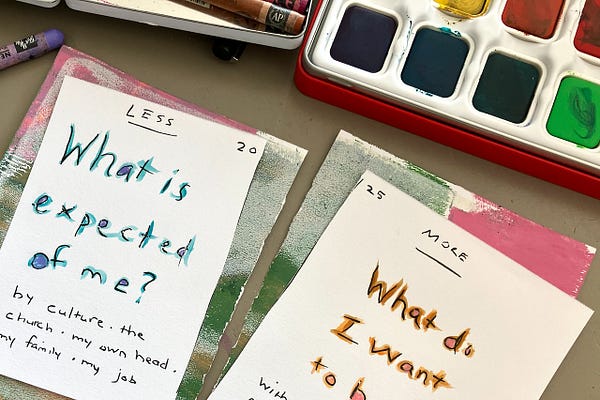 LESS
20
What is
expected
of me?
by culture · the
church · my own head ·
my family · my job
/25
MORE
What do
I want
to
with